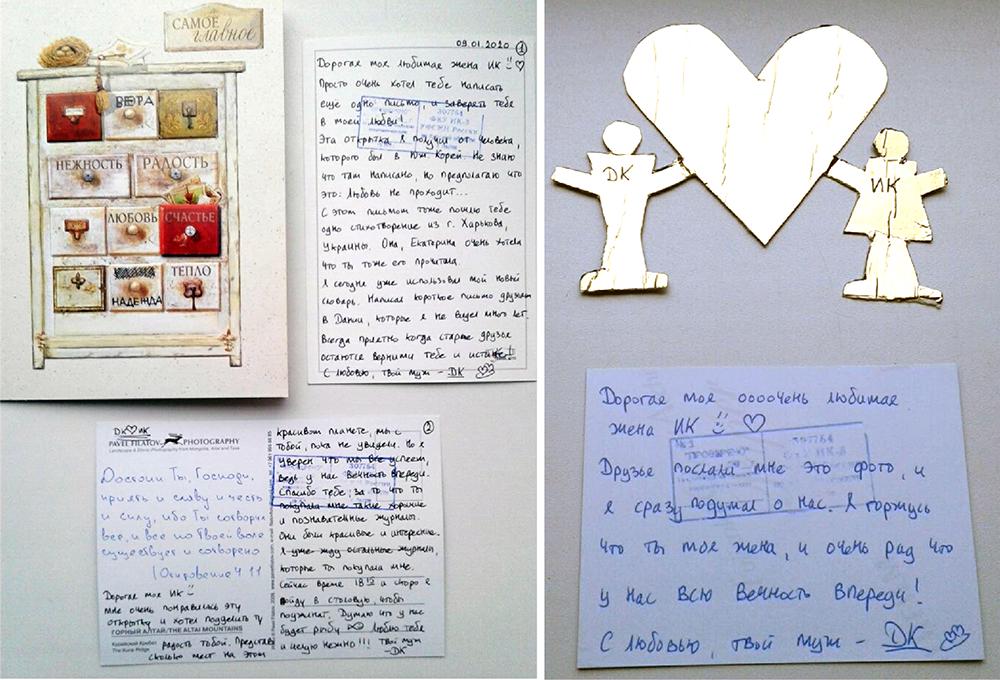 САМОЕ
главное
ВЕРА
НЕЖНОСТЬ
РАДОСТЬ
ЛЮБОВЬ
СЧАСТЬЕ
НАДЕЖДА
ТЕПЛО
09.01.2020 1
Дорогая моя любимая жена ИК
Просто очень хотел тебе написать
еще одно письмо, и заверять тебя
в моей любви!
Эта открытка я получил от человека,
которого был в Юж. Корей. Не знаю
что там написано, но предполагаю что
это: Любовь не проходит...
С этом письмом тоже пошлю тебе
одно стихотворение из г. Харькова,
Украины. Она, Екатерина очень хотела
что ты тоже его прочитала.
Я сегодня уже использовал мой новый
словарь. Написал короткое письмо друзьям
в Дании, которые я не видел много лет.
Всегда приятно когда старые друзья
остаются верними тебе и
С любовью, твой муж - DK
307764
ФКУ ИК-3
УФСИН России
DK ИК
PAVEL FILATOV PHOTOGRAPHY
Landscape & Ethnic Photography from Mongolia, Altai and Tuva
Достоин Ты, Господи,
принять и славу и честь
и силу, ибо Ты сотворил
все, и все по Твоей воле
существует и сотворено
Откровение 4 11
Дорогая моя ИК
мне очень понравилась эту
открытку и хотел поделить ту
ГОРНЫЙ АЛТАЙ/THE ALTAI MOUNTAINS
радость тобой. Представь
сколько мест на этом
2
красивой планете, мы с
тобой, пока не увидели. Но я
уверен что мы все успеем,
ведь у нас вечность впереди.
Спасибо тебе, за то что ты
покупала мне такие хорошие
и познавательные журналы.
Они были красивое и интересние.
Я уже жду остальные журналы,
которые ты покупала мне.
Сейчас время 18 и скоро я
пойду в столовую, чтобы
поужинат. Думаю что у нас
будет рыбу Люблю тебя
и целую нежно!!! Твой муж
-DK
DK
ИК
Дорогая моя ооооочень любимая
жена ИК
Друзье послали мне это фото, и
я сразу подумал о нас. Я горжусь
что ты моя жена, и очень рад что
у нас всю вечность впереди!
С любовью, твой муж - DK
307764